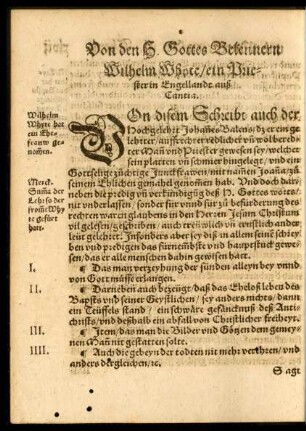 Von den H. Gottes Bekennern
Wilhelm Whyte / ein Prie-
ster in Engellandt auß
Cantia.
Wilhelm
Whyte hat
ein Ehe-
frauw ge-
nommen.
VOn disem Schreibt auch der
Hochgelehrt Johañes Baleus / dz er ein ge-
lehrter / auffrechter redlicher vñ wolberedt-
ter Mañ vnd Priester gewesen sey / welcher
sein platten vñ schmier hingelegt / vnd ein
Gottselige züchtige Junckfrawen / mit namen Joaña / zu
seinem Ehlichen gemahl genomen hab. Vnd doch dar-
neben die predig vñ verkündigũg deß H. Gottes worts /
nit vnderlassen / sonder für vnd für zů befürderung des
rechten waren glaubens in den Herren Jesum Christum
vil gelesen / geschriben / vnd auch treuwlich vñ ernstlich ander
leüt gelehrt. Insonders aber sey diß in allem seinẽ schrey-
ben vnd predigen das fürnembst vnd hauptstuck gewe-
sen / das er alle menschen dahin gewisen hart.
Merck-
Sum̃a der
Lehr so der
from̃e Why-
te gefürt
hatt.
I. ¶ Das man verzeyhung der sünden alleyn bey vnd
von Gott müsse erlangen.
II. ¶ Darneben auch bezeügt / daß das Eheloß leben des
Bapsts vnd seiner Geystlichen / sey anders nichts / dann
ein Teüffels stand / ein schwäre gefäncknuß deß Anti-
christs / vnd deßhalb ein abfall von Christlicher freiheyt.
III. ¶ Item / das man die Bilder vnd Götzen dem gemey-
nen Mañ nit gestatten solte.
IIII. ¶ Auch die gebeyn der todten nit mehr verehren / vnd
anders dergleichen / ꝛc.
Sagt